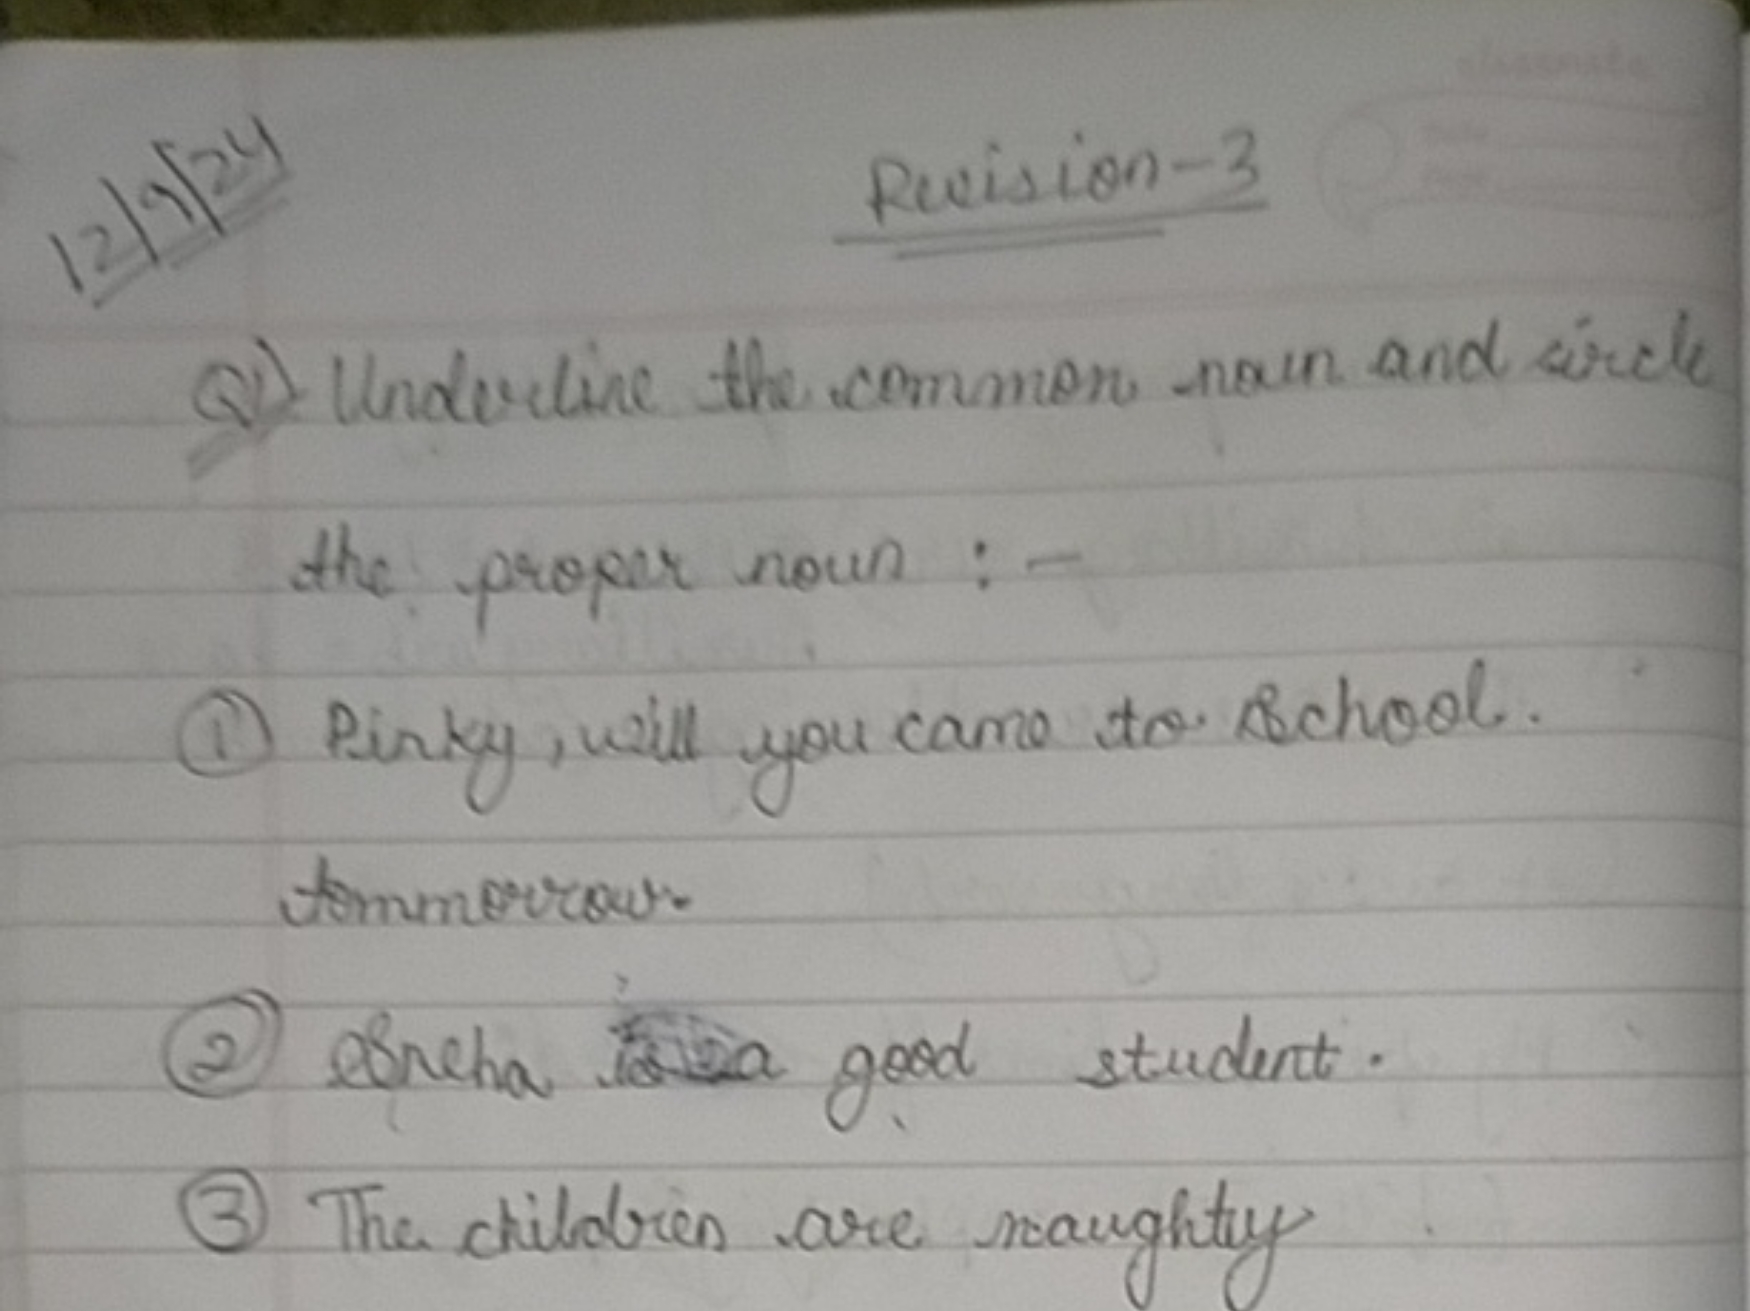 12/9/24
Revision-3
Q1) Underline the common noun and circle
the proper noun :-
① Pinky, will you came to School.
tommorrow.
② Sneha is a good student.
③ The children are naughty